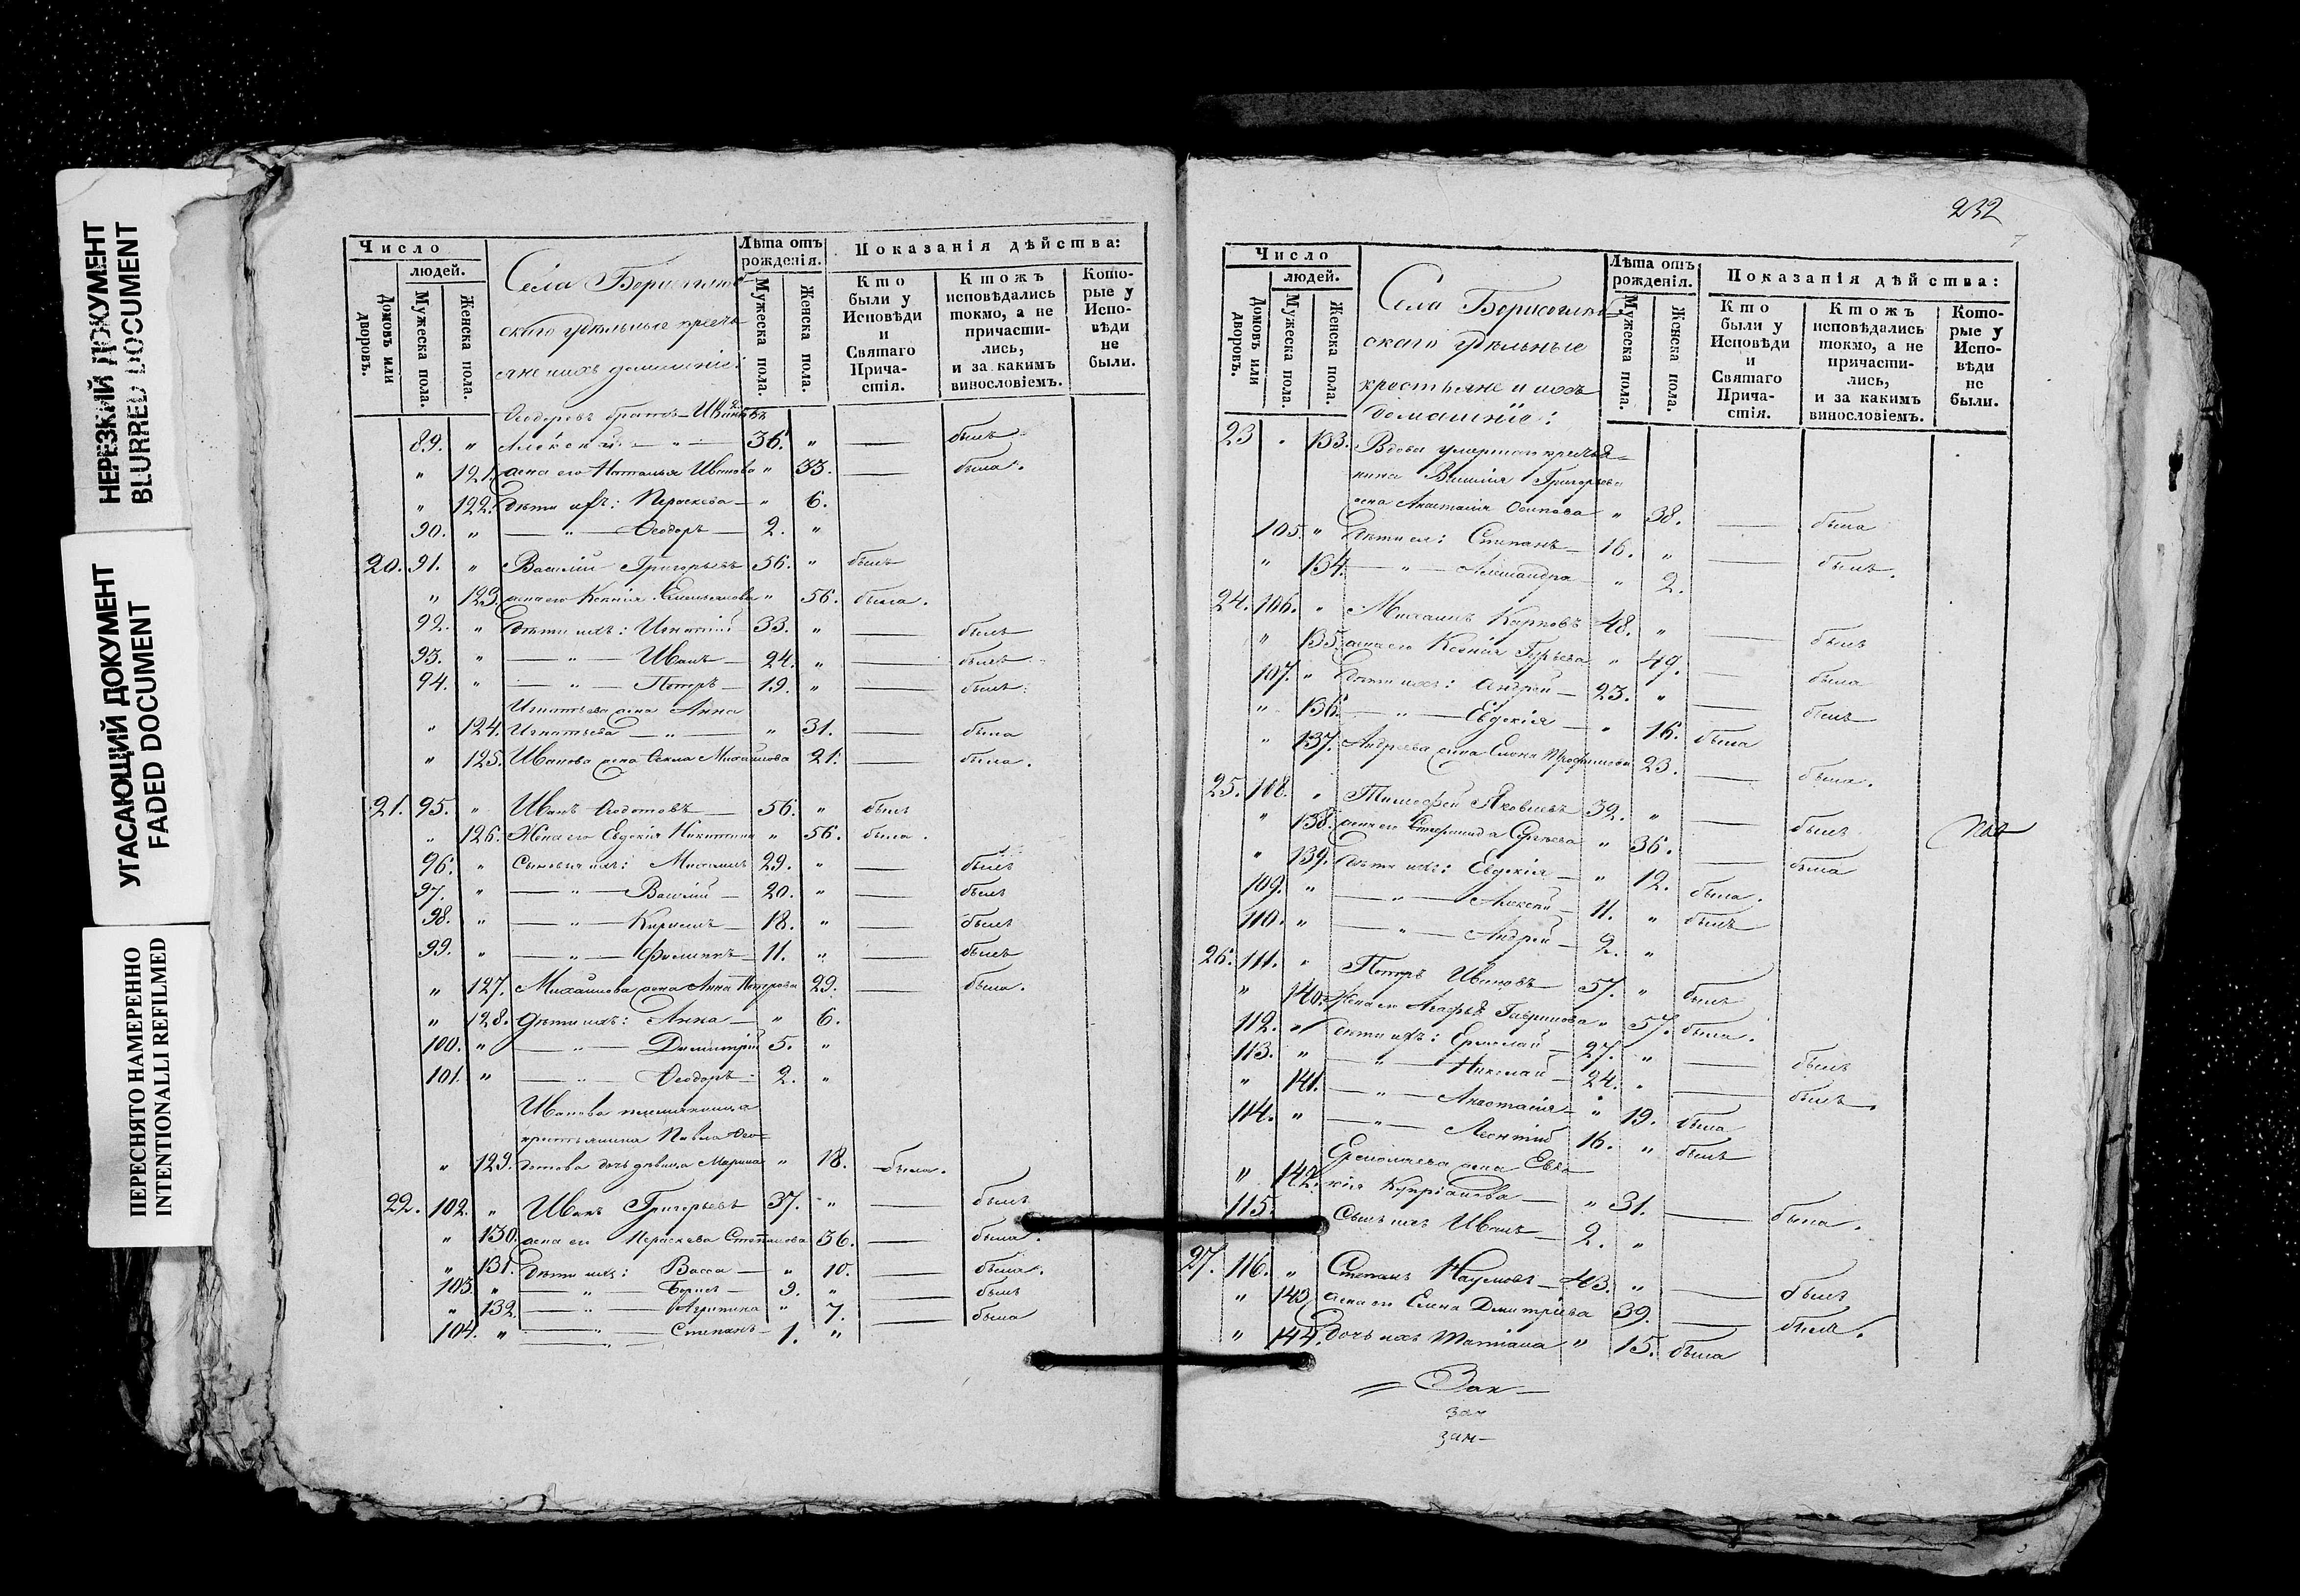 НЕРЕЗКИЙ ДОКУМЕНТ
BLURRED DOCUMENT
УГАСАЮЩИЙ ДОКУМЕНТ
FADED DOCUMENT
ПЕРЕСНЯТО НАМЕРЕННО
INTENTIONALLI REFILMED
Число
людей.
Домовъ или дворовъ.
Мужеска пола.
Женска пола.
Села Борисоглѣб-
скаго удѣльные кресть-
яне и ихъ домашніе:
Лѣта отъ рожденія.
Мужеска пола.
Женска пола.
Показанія дѣйства:
Кто были у Исповѣди и Святаго Прича- стія.
Ктожъ исповѣдались токмо, а не причасти- лись, и за какимъ винословіемъ.
Кото- рые у Испо- вѣди не были.
Ѳеодоровъ братъ Ивановъ
89. " Алексѣй — " — 36. " — былъ
" 121. жена его Наталья Иванова " 33. — была.
" 122. Дѣти ихъ: Параскева — " 6.
90. " — " — Ѳеодоръ — 2. "
20. 91. " Василій Григорьевъ 56. " былъ
" 123. жена его Ксенія Емельянова " 56. была.
92. " Дѣти ихъ: Игнатій 33. " — былъ
93. " — " — Иванъ — 24. " — былъ
94. " — " — Петръ — 19. " — былъ
Игнатьева жена Анна
" 124. Игнатьева — " — " 31. — была
" 125. Иванова жена Ѳекла Михайлова 21. — была.
21. 95. " Иванъ Ѳедотовъ — 56. " былъ
" 126. Жена его Евдокія Никитина " 56. была.
96. " Сыновья ихъ: Михаилъ 29. " — былъ
97. " — " — Василій — 20. " — былъ
98. " — " — Кириллъ — 18. " — былъ
99. " — " — Филиппъ — 11. " — былъ
" 127. Михайлова жена Анна Петрова 29. — была.
" 128. Дѣти ихъ: Анна — " 6.
100. " — " — Димитрій 5. "
101. " — " — Ѳеодоръ — 2. "
Иванова племянница
крестьянина Павла Ѳео-
" 129. дотова дочь дѣвица Марина " 18. — была.
22. 102. " Иванъ Григорьевъ 37. " — былъ
" 130. жена его Параскева Степанова 36. — была.
" 131. Дѣти ихъ: Васса — " 10. — была.
103. " — " — Борисъ — 9. " — былъ
" 132. — " — Агрипина " 7. — была
104. " — " — Степанъ — 1. "
232
Число
людей.
Домовъ или дворовъ.
Мужеска пола.
Женска пола.
Села Борисоглѣб-
скаго удѣльные
крестьяне и ихъ
домашніе:
Лѣта отъ рожденія.
Мужеска пола.
Женска пола.
Показанія дѣйства:
Кто были у Исповѣди и Святаго Прича- стія.
Ктожъ исповѣдались токмо, а не причасти- лись, и за какимъ винословіемъ.
Кото- рые у Испо- вѣди не были.
23 " 133. Вдова умершаго крестья-
нина Василія Григорьева
жена Анастасія Осипова " 38. — была
105. " Дѣти ея: Степанъ — 16. " — былъ.
" 134. — " — Александра " 2.
24. 106. " Михаилъ Карповъ 48. " — былъ
" 135. жена его Ксенія Гурьева " 49. — была
107. " Дѣти ихъ: Андрей — 23. " — былъ
" 136. — " — Евдокія — " 16. была
" 137. Андреева жена Елена Трофимова 23. — была.
25. 108. " Тимоѳей Яковлевъ 32. " — былъ
" 138. жена его Степанида Сергѣева " 36. — была
" 139. Дѣти ихъ: Евдокія — " 12. была.
109. " — " — Алексѣй — 11. " былъ
110. " — " — Андрей — 2. "
26. 111. " Петръ Ивановъ — 57. " былъ
" 140. Жена его Агафья Гаврилова " 57. была.
112. " Дѣти ихъ: Ермолай — 27. " — былъ
113. " — " — Николай — 24. " — былъ.
" 141. — " — Анастасія — " 19. была
114. " — " — Леонтій 16. " былъ
Ермолаева жена Евдо-
" 142. кія Купріанова — " 31. — была.
115. Сынъ ихъ Иванъ — 2. "
27. 116. " Степанъ Наумовъ — 43. " — былъ
" 143 жена его Елена Дмитріева 39. — была.
" 144. дочь ихъ Татіана " 15. была
зам